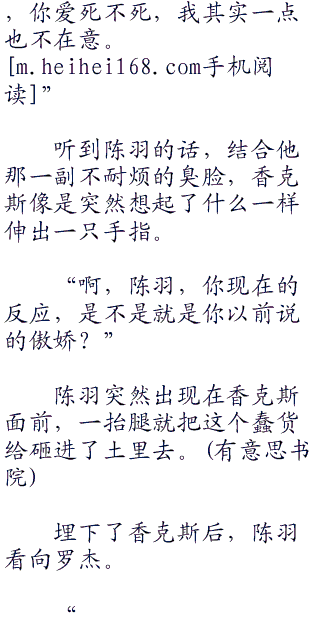 ，你爱死不死，我其实一点
也不在意。
[m.heihei168.com手机阅
读]”
听到陈羽的话，结合他
那一副不耐烦的臭脸，香克
斯像是突然想起了什么一样
伸出一只手指。
“啊，陈羽，你现在的
反应，是不是就是你以前说
的傲娇？”
陈羽突然出现在香克斯
面前，一抬腿就把这个蠢货
给砸进了土里去。(有意思书
院)
埋下了香克斯后，陈羽
看向罗杰。
“